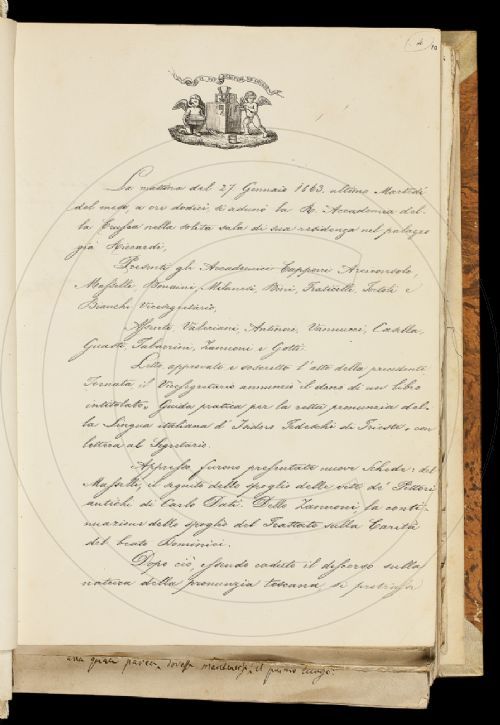 La mattina del 27 Gennaio 1863. ultimo Martedì
del mese, a ore dodici, si adunò la R. Accademia del-
la Crusca nella solita sala di sua residenza nel palazzo
già Riccardi,
Presenti gli Accademici Capponi Arciconsolo,
Masselli, Bencini, Milanesi, Bini, Fraticelli, Tortoli e
Bianchi Vicesegretario,
Assenti Valeriani, Antinori, Vannucci, Casella,
Guasti, Tabarrini, Zannoni e Gotti.
Letto, approvato e soscritto l'atto della precedente
Tornata il Vicesegretario annunciò il dono di un libro
intitolato, Guida pratica per la retta pronunzia del-
la Lingua italiana d'Isidoro Tedeschi di Trieste, con
lettera al Segretario.
Appresso furono presentate nuove Schede: del
Masselli, il seguito dello spoglio delle vite de' Pittori
antichi di Carlo Dati. Dello Zannoni, la conti-
nuazione dello spoglio del Trattato sulla Carità
del beato Dominici.
Dopo ciò, essendo caduto il discorso sulla
natura della pronunzia toscana, si protrasse
il primo luogo.